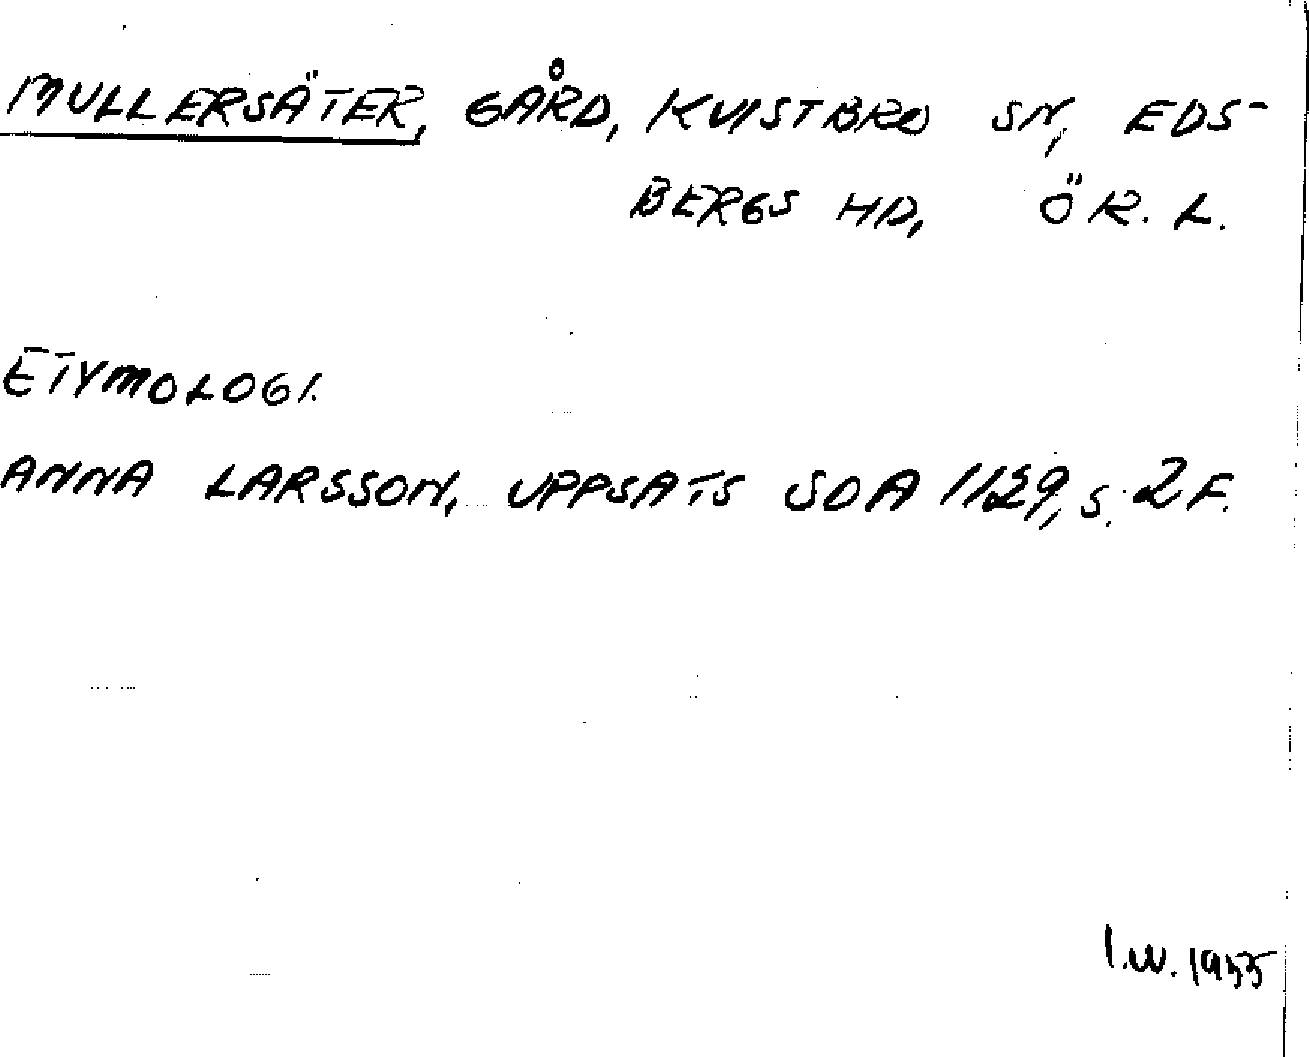 MULLERSÄTER, GÅRD, KVISTBRO SN, EDS-
BERGS HD, ÖR. L.
ETYMOLOGI.
ANNA LARSSON, UPPSATS SOA 1129, S. 2 F.
I.W. 1955